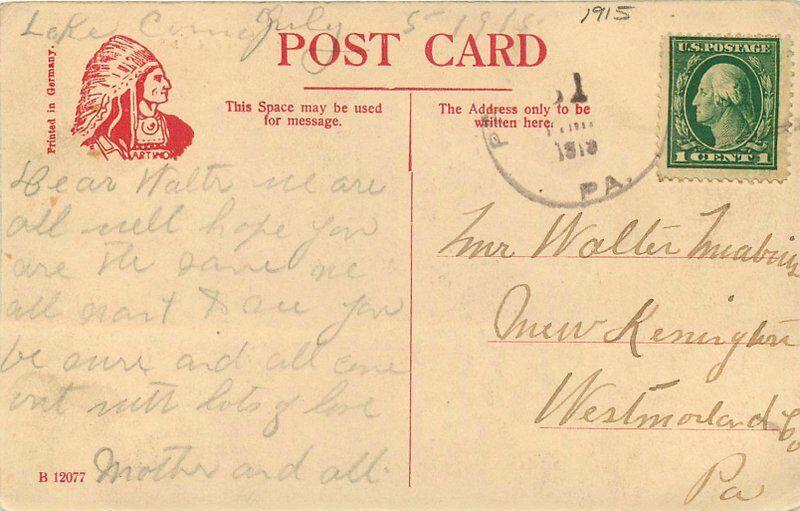 Lake Como July 5 1915
1915
POST CARD
Printed in Germany.
ARTINO
This Space may be used
for message.
The Address only to be
written here.
U.S. POSTAGE
1 CENT 1
1
1913
PA.
Dear Waltr we are
all well hope you
are the same we
all want to see you
be sure and all come
out with lots of love
Mother and all.
Mr Walter
New Kenington
Westmorland Co
Pa
B 12077